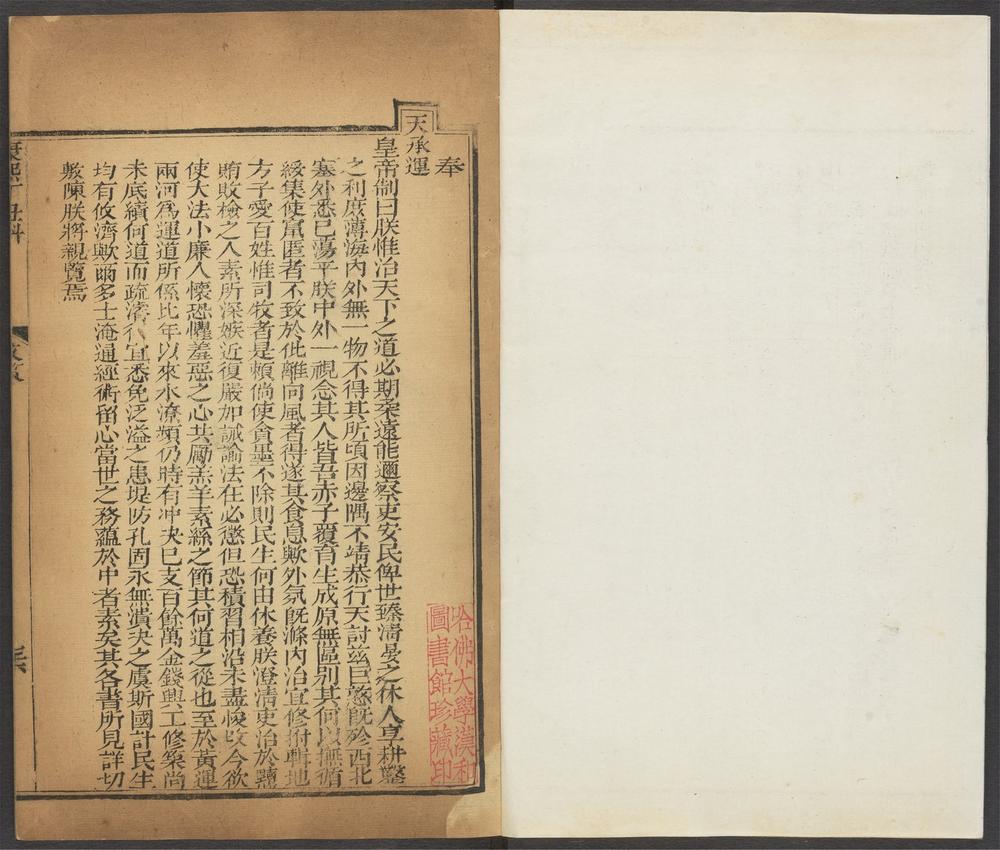 奉
天承運
皇帝制曰朕惟治天下之道必期柔遠能邇察吏安民俾世臻清晏之休人享耕鑿
之利庶薄海內外無一物不得其所頃因邊隅不靖恭行天討兹巨憝旣殄西北
塞外悉已蕩平朕中外一視念其人皆吾赤子覆育生成原無區別其何以撫循
綏集使竄匿者不致於仳離向風者得遂其食息歟外氛旣滌內治宜修拊輯地
方子愛百姓惟司牧者是賴倘使貪墨不除則民生何由休養朕澄清吏治於黷
賄敗檢之人素所深嫉近復嚴加誡諭法在必懲但恐積習相沿未盡悛改今欲
使大法小廉人懷恐懼羞惡之心共勵羔羊素絲之節其何道之從也至於黃運
兩河為運道所係比年以來水潦頻仍時有冲决已支百餘萬金錢興工修築尚
未底績何道而疏濬得宜悉免泛溢之患堤防孔固永無潰决之虞斯國計民生
均有攸濟歟爾多士淹通經術留心當世之務蘊於中者素矣其各書所見詳切
敷陳朕將親覽焉
康熙丁丑科
哈佛大學漢和
圖書館珍藏印